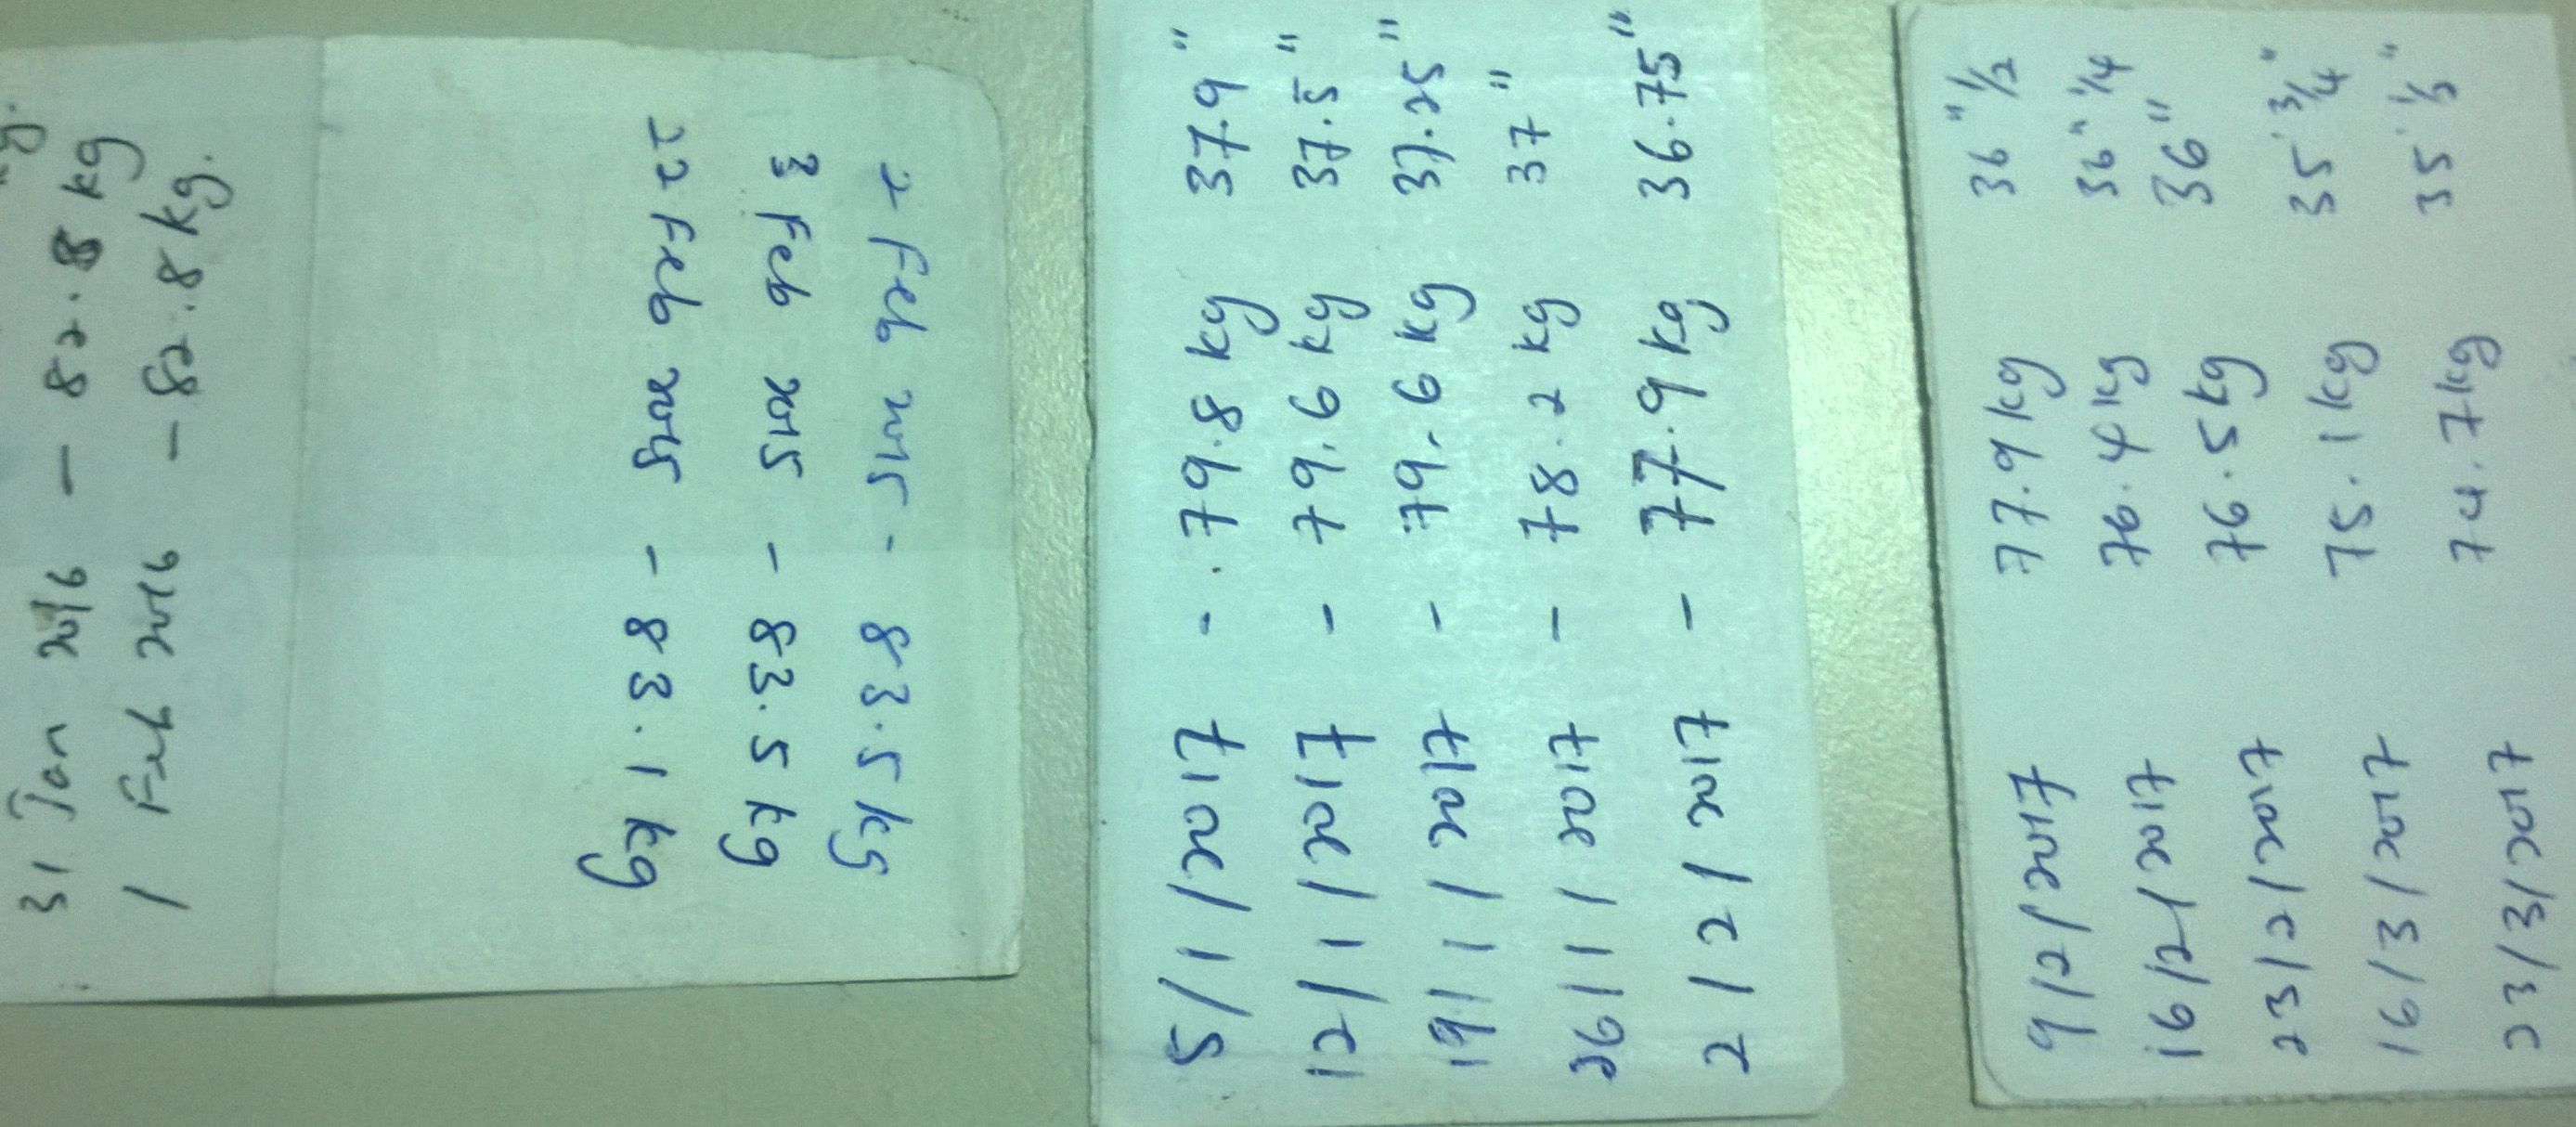 31 Jan 2016 - 82.8 kg
1 Feb 2016 - 82.8 kg.
2 Feb 2015 - 83.5 kg
3 Feb 2015 - 83.5 kg
22 Feb 2015 - 83.1 kg
5/1/2017 - . 79.8 kg 37.9"
12/1/2017 - 79.6 kg 37.5"
19/1/2017 - 79.6 kg 37.25"
26/1/2017 - 78.2 kg 37"
2/2/2017 - 77.9 kg 36.75"
9/2/2017 77.9 kg 36" 1/2
16/2/2017 76.4 kg 36" 1/4
23/2/2017 76.5 kg 36"
16/3/2017 75.1 kg 35. 3/4"
23/3/2017 74.7 kg 35. 1/2"